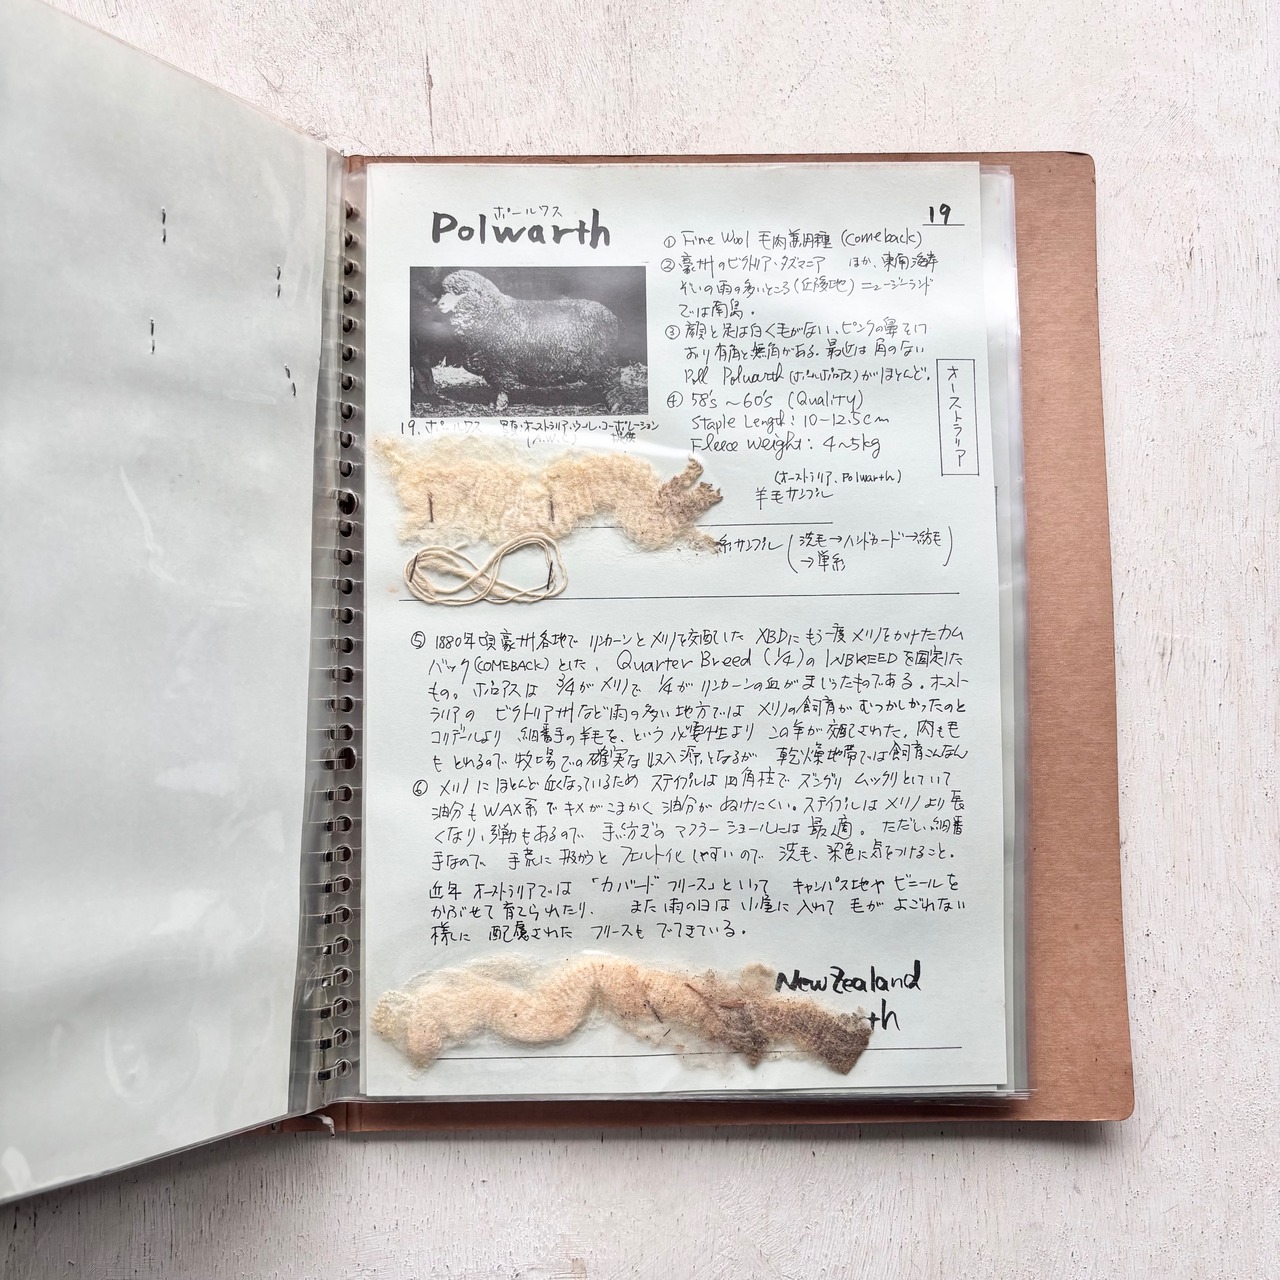 ポールワス
Polwarth
19
① Fine Wool 毛肉兼用種 (Comeback)
② 豪州のビクトリア・タズマニア ほか、東南海岸
ぞいの雨の多いところ(丘陵地) ニュージーランド
では南島。
③ 顔と足は白く毛がない、ピンクの鼻をして
おり有角と無角がある。最近は角のない
Poll Polwarth (ポールポロアス)がほとんど。
④ 58's ~ 60's (Quality)
Staple Length: 10-12.5cm
Fleece Weight: 4~5kg
オーストラリア
19. ポールワス 写真・オーストラリア・ウール・コーポレーション
(A.W.C) 提供
(オーストラリア、Polwarth)
羊毛サンプル
糸サンプル (洗毛→ハンドカード→紡毛
→単糸)
⑤ 1880年頃豪州各地で リンカーンとメリノを交配した XBDに もう一度 メリノをかけたカム
バック(COMEBACK) とした、 Quarter Breed (1/4)の INBREEDを固定した
もの。ポロアスは 3/4がメリノで 1/4がリンカーンの血がまじったものである。オースト
ラリアの ビクトリア州など雨の多い地方では メリノの飼育がむつかしかったのと
コリデールより 細番手の羊毛を、という必要性より この羊が交配された。肉も毛
も とれるので 牧場での確実な収入源となるが 乾燥地帯では飼育こんなん
⑥ メリノにほとんど近くなっているため ステイプルは 四角柱で ズングリ ムックリとしていて
油分もWAX系で キメがこまかく 油分がぬけにくい。ステイプルはメリノより長
くなり、弾力もあるので 手紡ぎの マフラー ショールには 最適。 ただし、細番
手なので、 手荒に扱かうと フェルト化しやすいので 洗毛、染色に気をつけること。
近年 オーストラリアでは 「カバード フリース」といって キャンバス地や ビニールを
かぶせて育てられたり、 また 雨の日は 小屋に入れて 毛が よごれない
様に 配慮された フリースも でてきている。
New Zealand
th